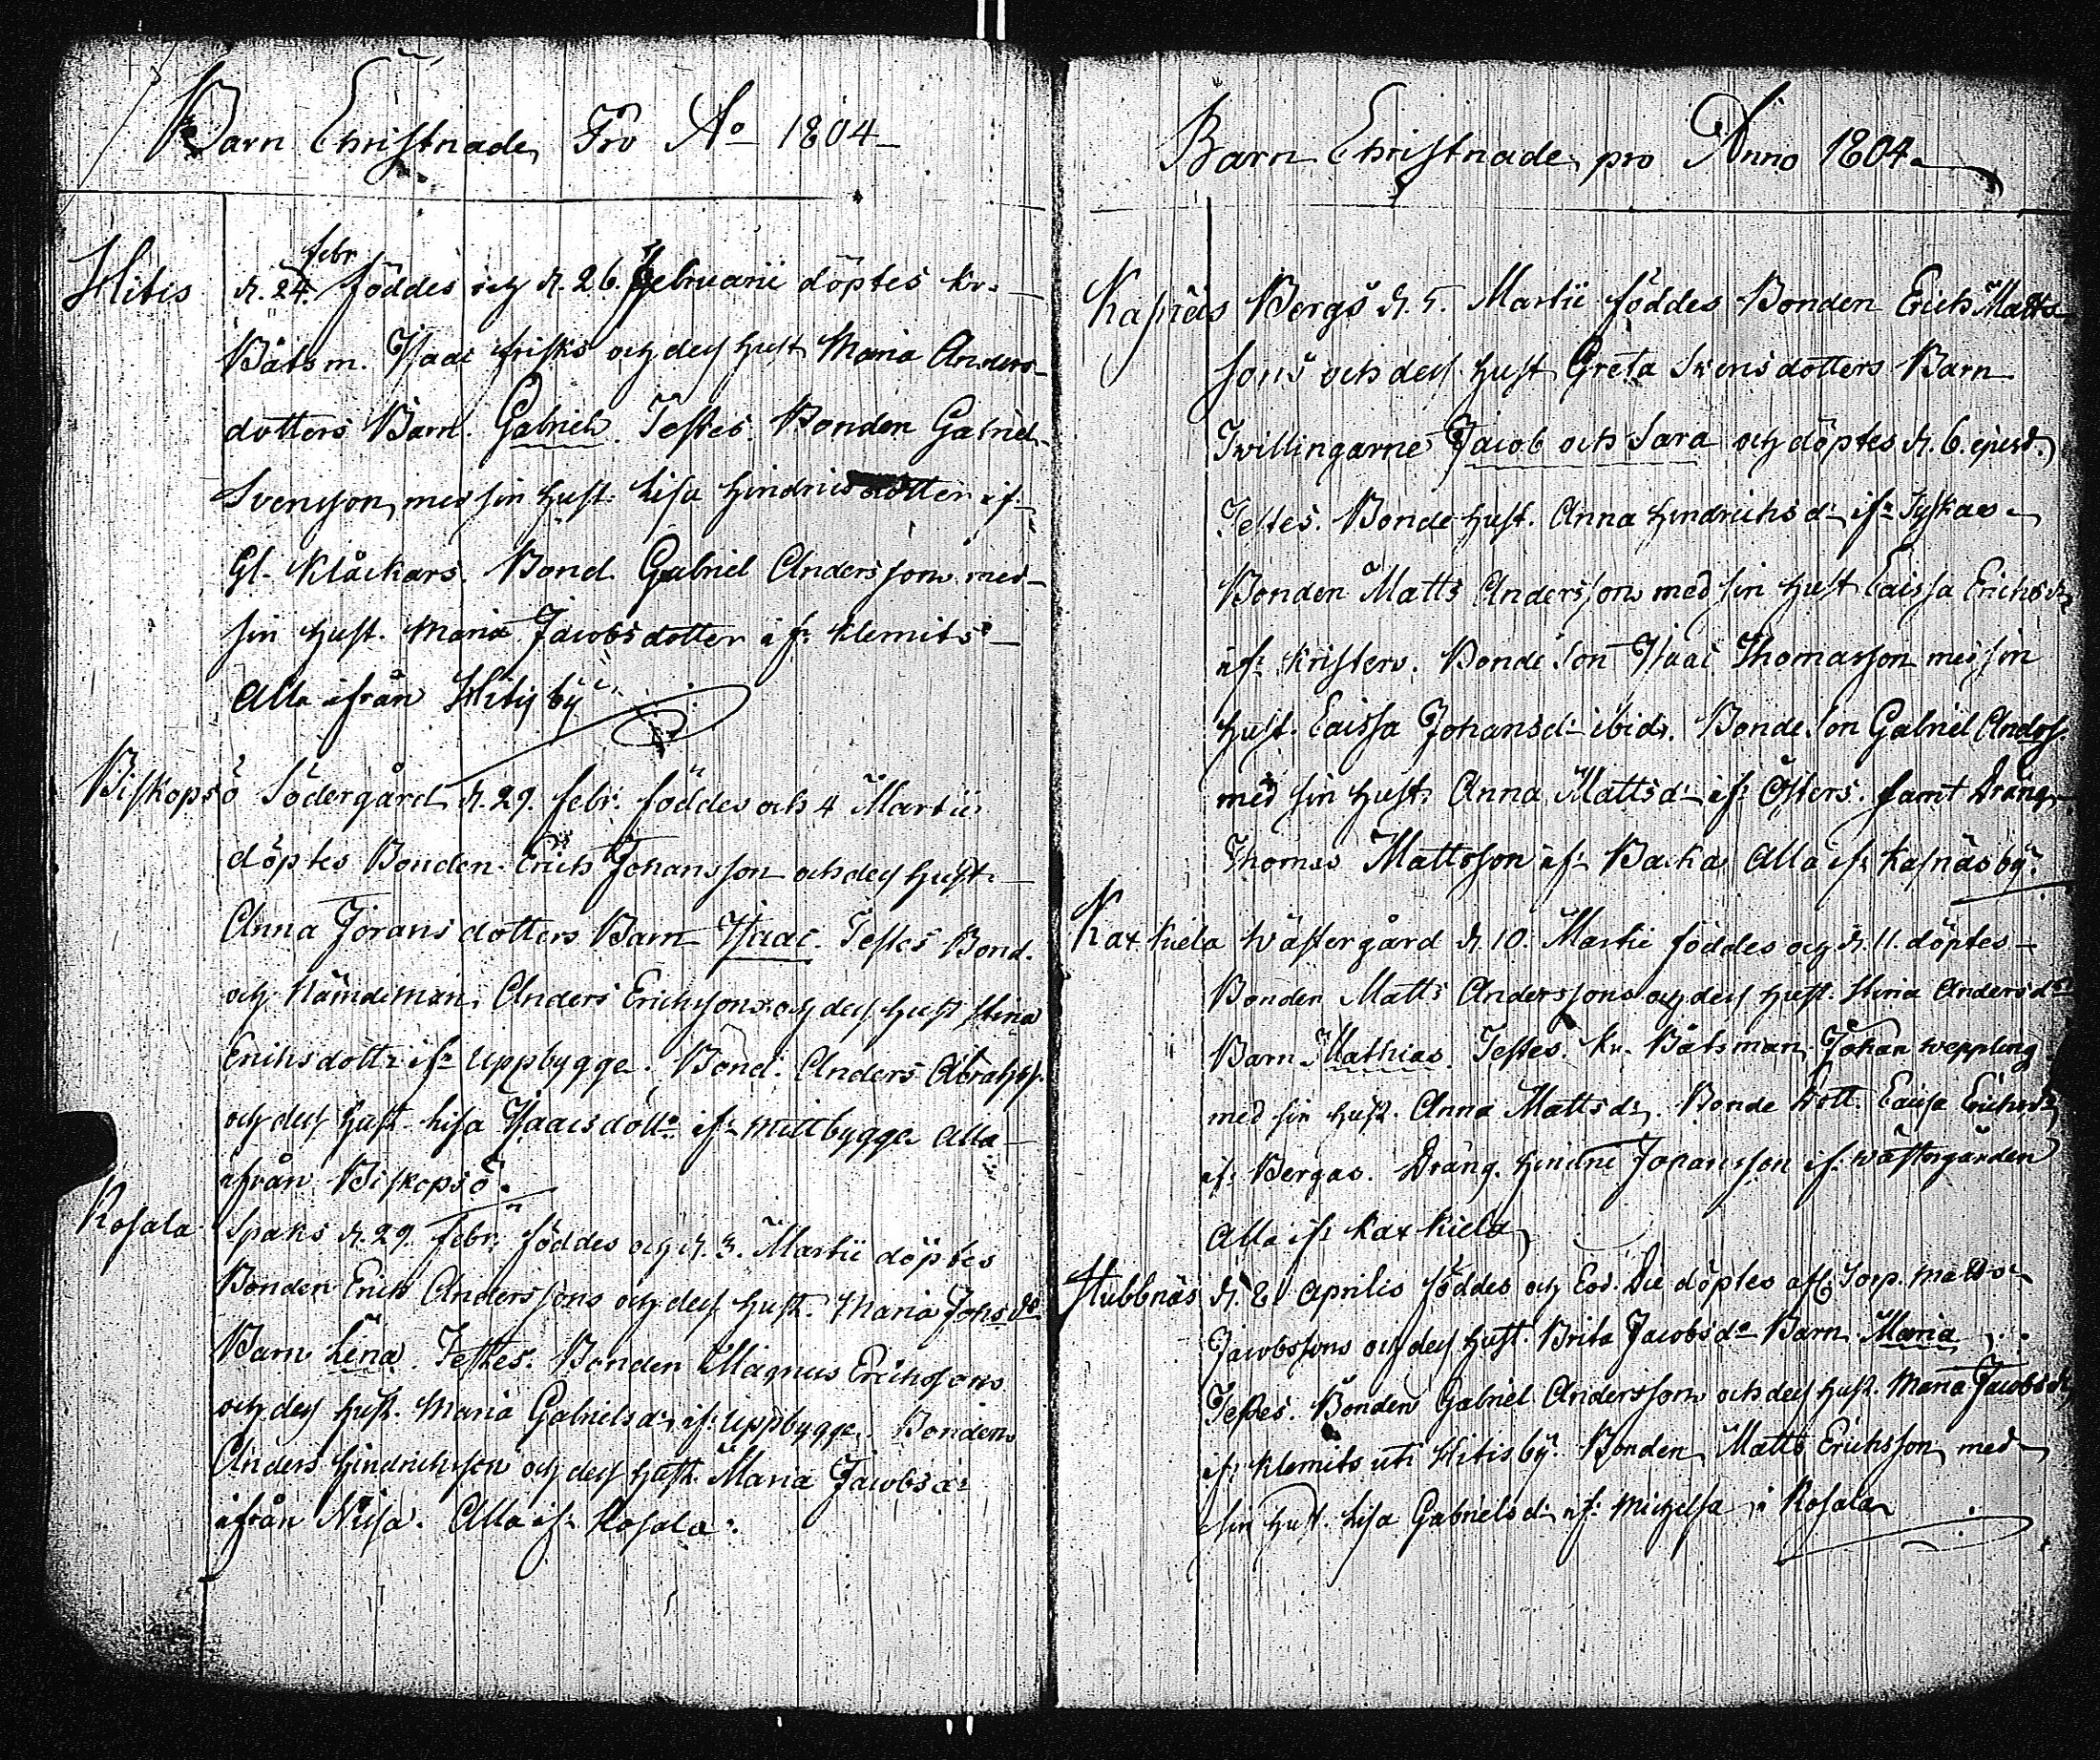 Barn Christnade Pro Ao 1804
Hitis d. 24. febr föddes och d. 26. Februarii döptes Kr.
Båtsm. Isaac frisks och dess hust Maria Anders-
dotters Barn. Gabriel. Testes. Bonden Gabriel
Svensson, med sin hust. Lisa Hindricsdotter if:
Gl. Klåckars. Bond. Gabriel Andersson med
sin hust. Maria Jacobsdotter if: Klemits
Alla ifrån Hitis by
Biskopsö Södergård d. 29. febr. föddes och 4 Martii
döptes Bonden Erich Johansson och dess hust.
Anna Jöransdotters Barn Isaac. Testes Bond.
och Nämdeman Anders Erichsson och dess hust Stina
Erichsdottr if: Uppbygge. Bond. Anders Abrahss.
och dess hust Lisa Isaacsdottr if: mittbygge Alla
ifrån Biskopsö.
Rosala Spaks d. 29. febr. föddes och d. 3. Martii döptes
Bonden Erich Anderssons och dess hust. Maria Johsdr
Barn Lena. Testes. Bonden Magnus Erichsson
och dess hust. Maria Gabrielsdr if: Uppbygge. Bonden
Anders Hindrichsson och dess hust. Maria Jacobsdr
ifrån Nisa. Alla if: Rosala.
Barn Christnade pro Anno 1804.
Kasnäs Bergs d. 5. Martii föddes Bonden Erich Matts
sons och dess hust Greta Svensdotters Barn
Twillingarne Jacob och Sara och döptes d. 6. ejusd.
Testes. Bonde hust. Anna Hindrichsd: if: Tyskas
Bonden Matts Andersson med sin hust Caissa Erichsdr
if: Kristers. Bonde Son Isaac Thomasson med sin
hust. Caissa Johansd: ibid. Bonde Son Gabriel Anders.
med sin hust. Anna Mattsd: if: Östers. samt Dräng
Thomas Mattsson if: Backa Alla if: Kasnäs by.
Kaxkiela Wästergård d. 10. Martii föddes och d. 11. döptes
Bonden Matts Anderssons och dess hust. Stina Andersdr
Barn Mathias. Testes. Kr. Båtsman Johan Weppling
med sin hust. Anna Mattsdr. Bonde Dott. Caisa Erichsdr
if: Bergas. Dräng. Hindric Johansson if: Wästergården
Alla if: Kaxkiela
Stubbnäs d. 21 Aprilis föddes och Eod. Die döptes Torp. Matts
Jacobssons och dess hust. Brita Jacobsdr Barn. Maria
Testes. Bonden Gabriel Andersson och dess hust. Maria Jacobsdr
if: Klemits uti Hitis by. Bonden Matts Erichsson med
sin hust. Lisa Gabrielsd: if: Michelsa i Rosala